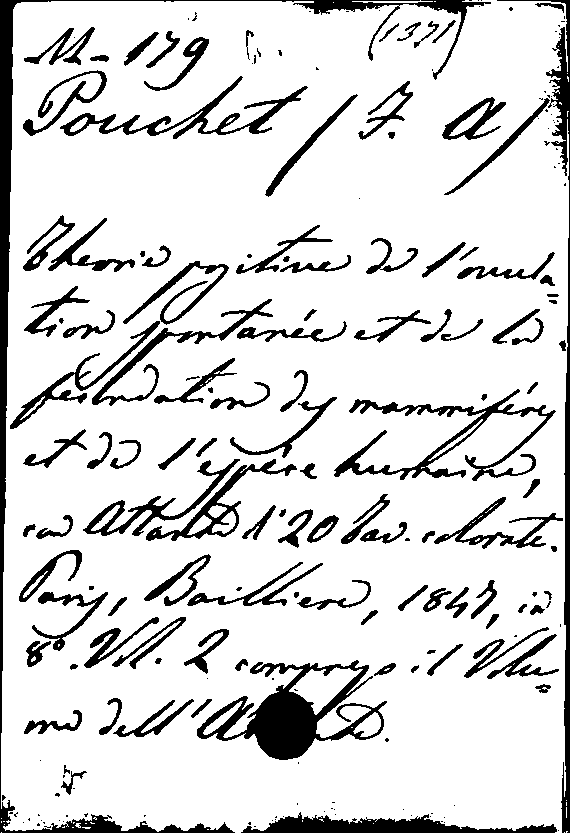 M-179 (1371)
Pouchet (F. A)
Theorie positive de l'ovula=
tion spontanée et de la
fécondation des mammiféres
et de l'espéce humaine,
con Atlante di 20 Tav. colorate.
Paris, Bailliere, 1847, in
8°. Vol. 2 compreso il Volu=
me dell'Atlante.